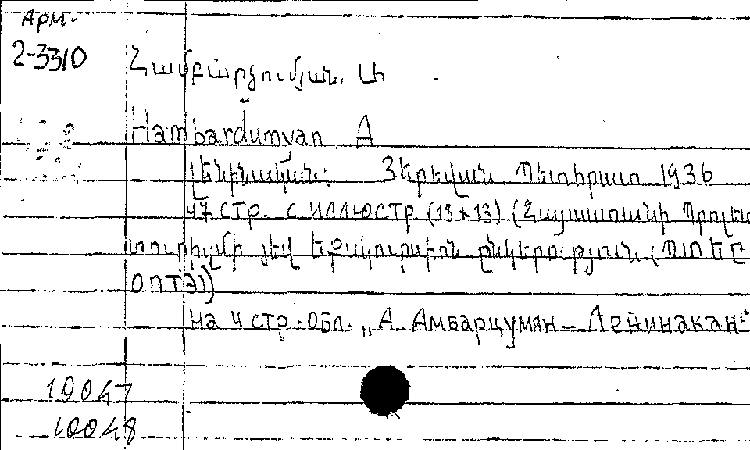 Арм-
2-3310
Համբարձումյան. Ա
Hambardumyan A
Լենինական. Յերեվան Պետհրատ 1936
47 стр. с иллюстр (13×13) (Հայաստանի Պրոլե
տուրիզմի յեվ եքսկուրսիոն ընկերություն. (
ОПТЭ))
На 4 стр. обл. „А Амбарцумян – Ленинакан"
10047
10048